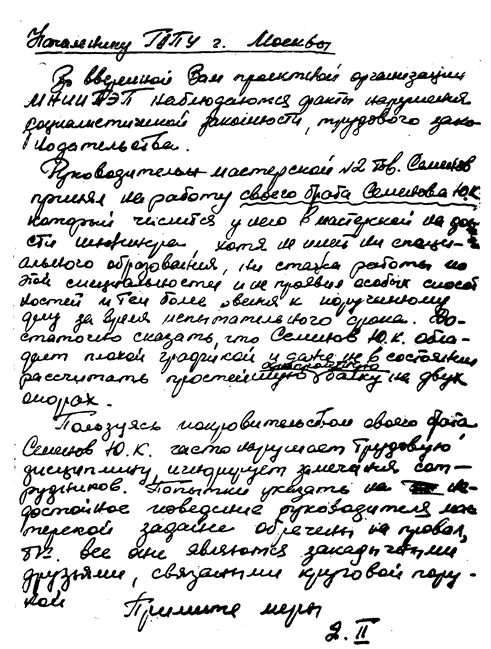 Начальнику ГАПУ г. Москвы
В вверенной Вам проектной организации
МНИИТЭП наблюдаются факты нарушения
социалистической законности, трудового зако
нодательства.
Руководитель мастерской №2 тов. Семенов
принял на работу своего брата Семенова Ю.К.
который числится у него в мастерской на дол
сти инженера, хотя не имел ни специ-
ального образования, ни стажа работы по
этой специальности и не проявил особых способ
ностей и тем более рвения к порученному
делу за время испытательного срока. До-
статочно сказать, что Семенов Ю.К. обла-
дает плохой графикой и даже не в состоянии
рассчитать простейшую однопролетную балку на двух
опорах.
Пользуясь покровительством своего брата
Семенов Ю.К. часто нарушает трудовую
дисциплину, игнорирует замечания сот-
рудников. Попытки указать на не-
достойное поведение руководителя мас
терской заранее обречены на провал,
т.к. все они являются закадычными
друзьями, связанными круговой пору-
кой
Примите меры
2.II